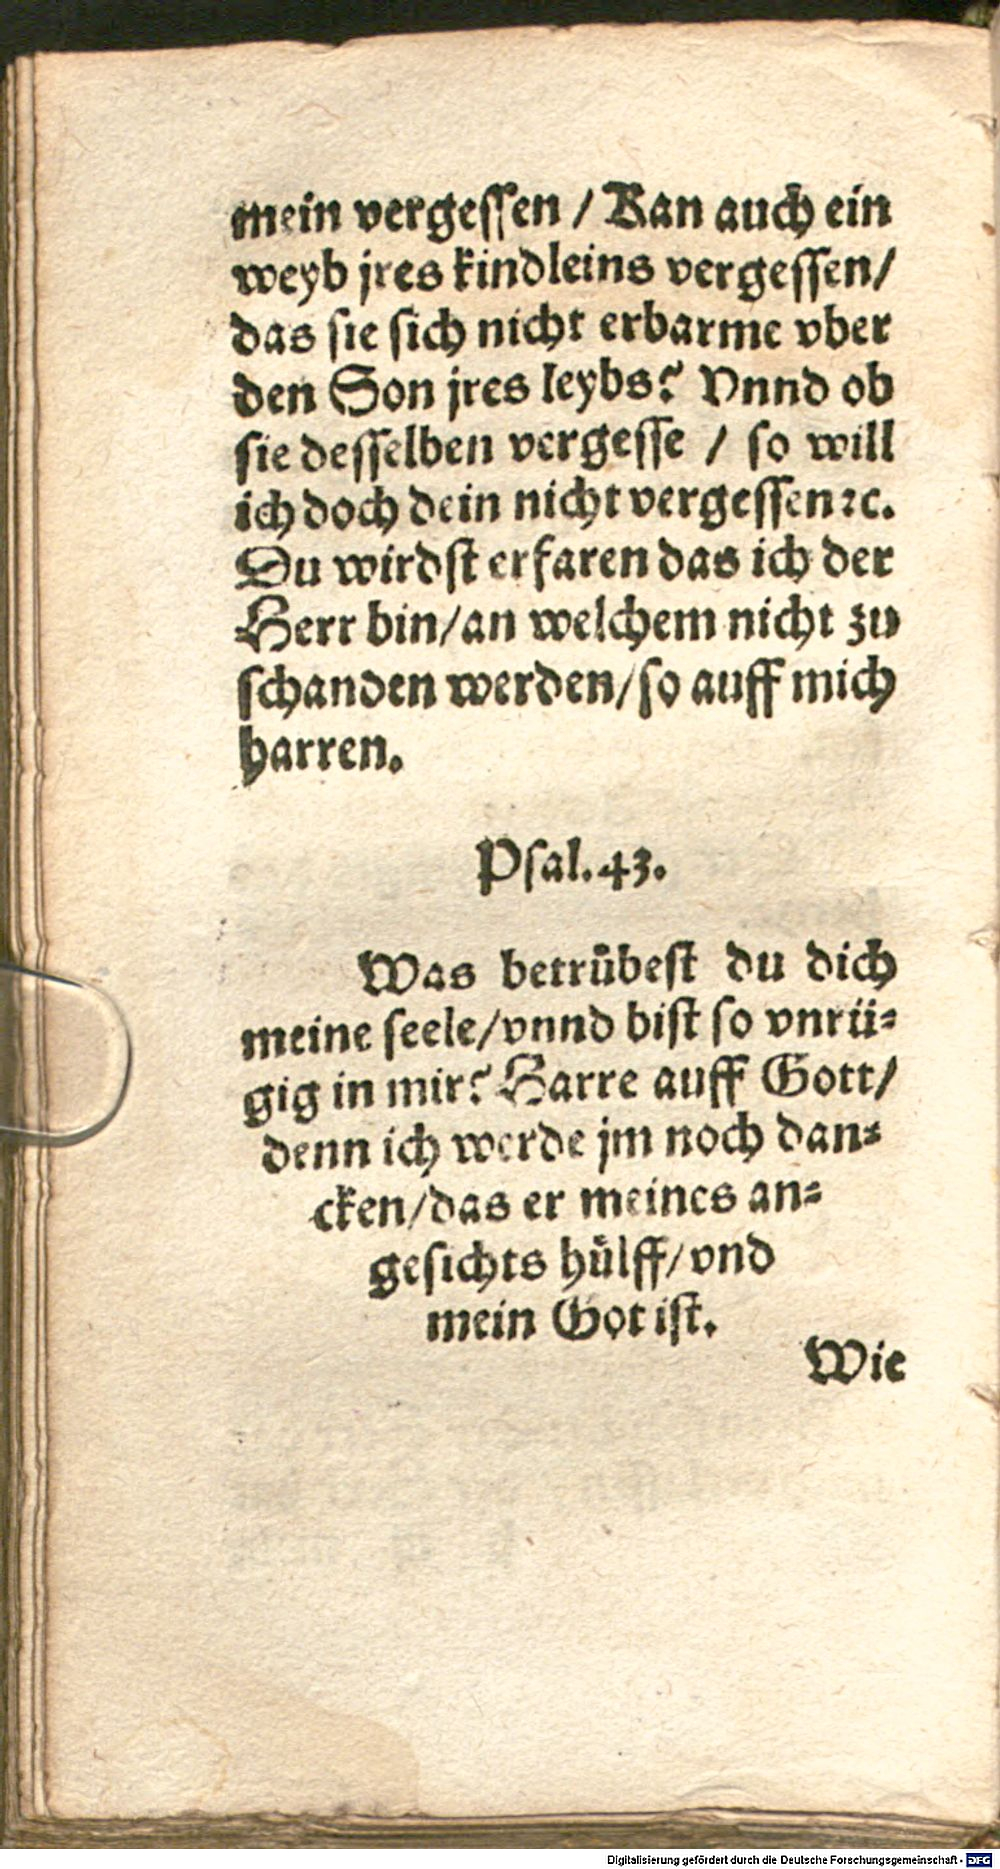 mein vergeſſen / Kan auch ein
weyb jres kindleins vergeſſen/
das ſie ſich nicht erbarme vber
den Son jres leybs? Vnnd ob
ſie deſſelben vergeſſe / ſo will
ich doch dein nicht vergeſſen ꝛc.
Du wirdſt erfaren das ich der
Herr bin/an welchem nicht zu
ſchanden werden/ſo auff mich
harren.
Pſal. 43.
Was betrübeſt du dich
meine ſeele/vnnd biſt ſo vnrü⸗
gig in mir? Harre auff Gott/
denn ich werde jm noch dan⸗
cken/das er meines an⸗
geſichts hülff/vnd
mein Got iſt.
Wie
Digitalisierung gefördert durch die Deutsche Forschungsgemeinschaft - DFG